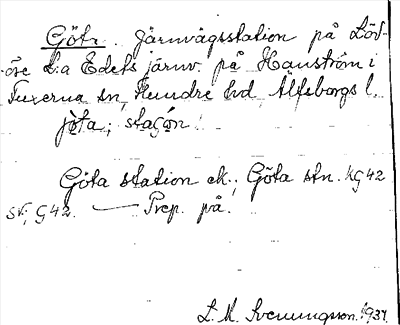 Göta. Järnvägsstation på Löd-
öse L:a Edets järnv. på Hanström i
Tuxerna sn, Flundre hd, Älfsborgs l.
jöta; stasón.
Göta station ek.; Göta stn. kG42
SJ; G42. — Prep. på.
L. M. Svenungsson. 1937.